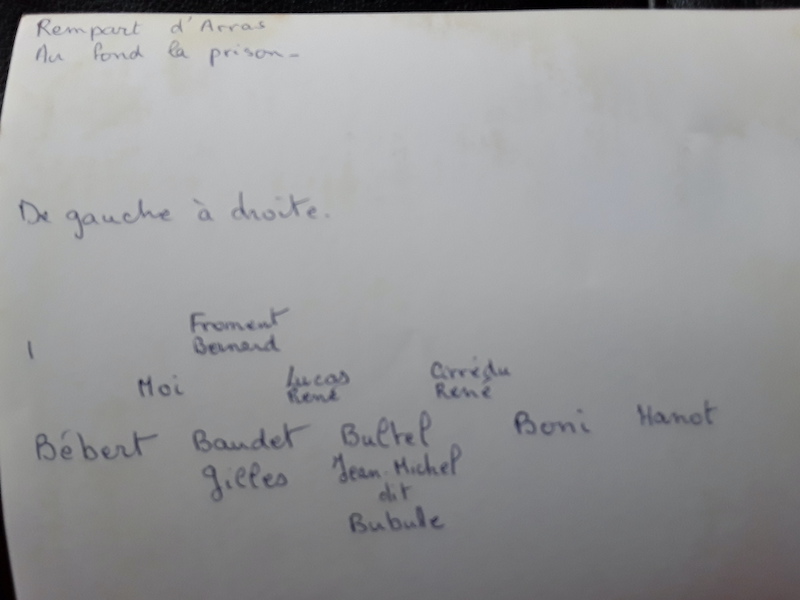 Rempart d'Arras
Au fond la prison -
De gauche à droite.
Froment
Bernard
Moi Lucas
René
René
Bébert Baudet Bultel Boni Hanot
Gilles Jean-Michel
dit
Bubule